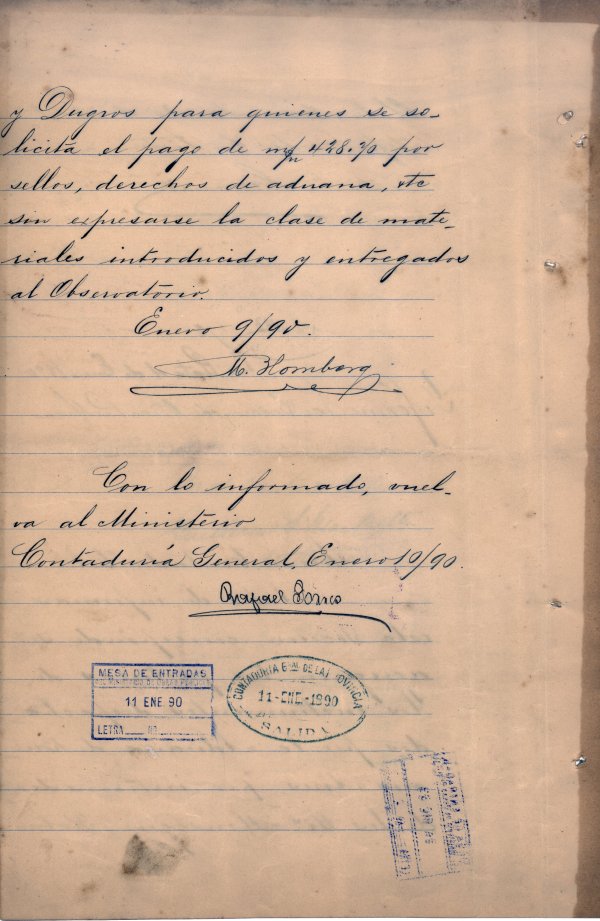 y Dugros para quienes se so-
licita el pago de m/n 428.70 por
sellos, derechos de aduana, etc
sin expresarse la clase de mate-
riales introducidos y entregados
al Observatorio.
Enero 9/90.
M. Homberg
Con lo informado, vuel-
va al Ministerio
Contaduría General, Enero 10/90.
Rafael
MESA DE ENTRADAS
11 ENE 90
LETRA Nº
CONTADURIA GRAL DE LA PROVINCIA
11-ENE-1890
SALIDA